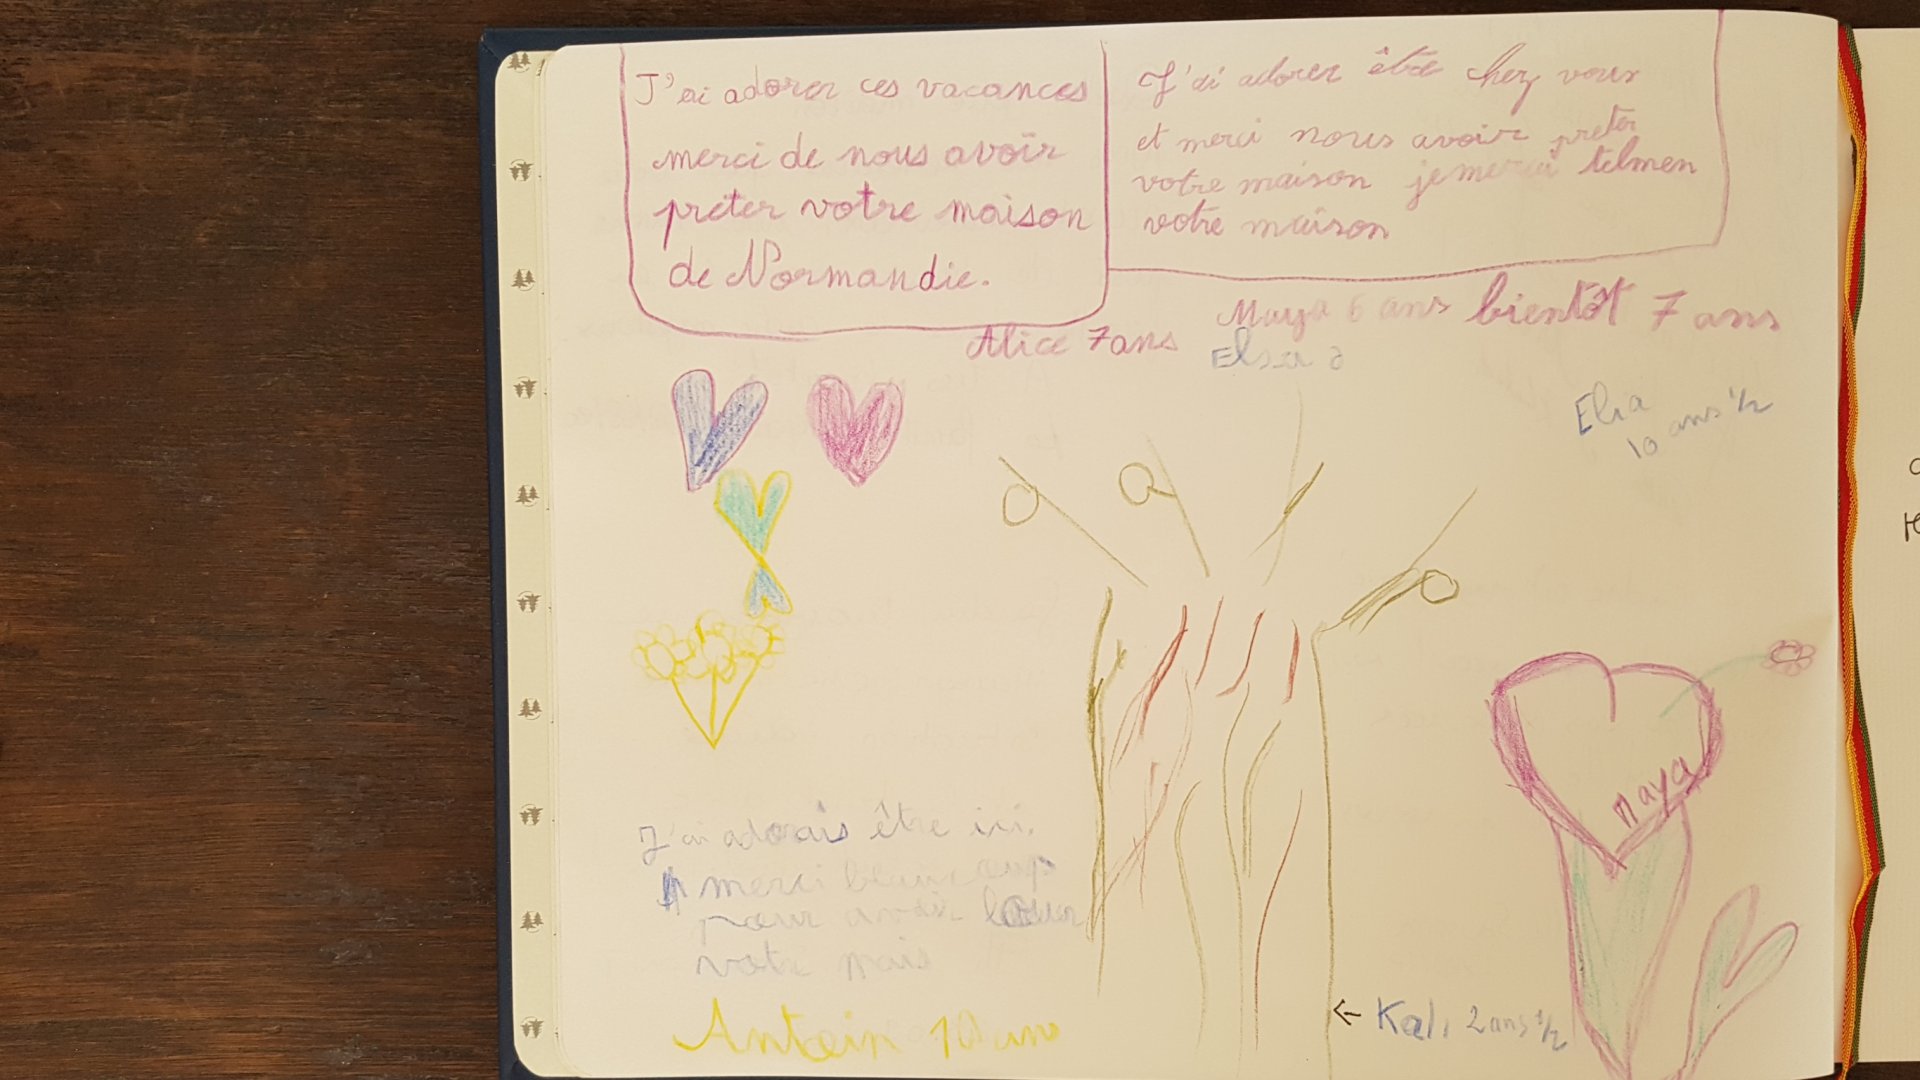 J'ai adorer ces vacances
merci de nous avoir
prêter votre maison
de Normandie.
Alice 7ans
J'ai adorer être chez vous
et merci nous avoir preter
votre maison je merci telmen
votre maison
Maya 6 ans bientôt 7 ans
Elsa
Elsa
10 ans 1/2
J'ai adorais être ici.
merci beaucoup
pour avoir louer
votre mais
Antoin 10 ans
← Kali 2 ans 1/2
Maya